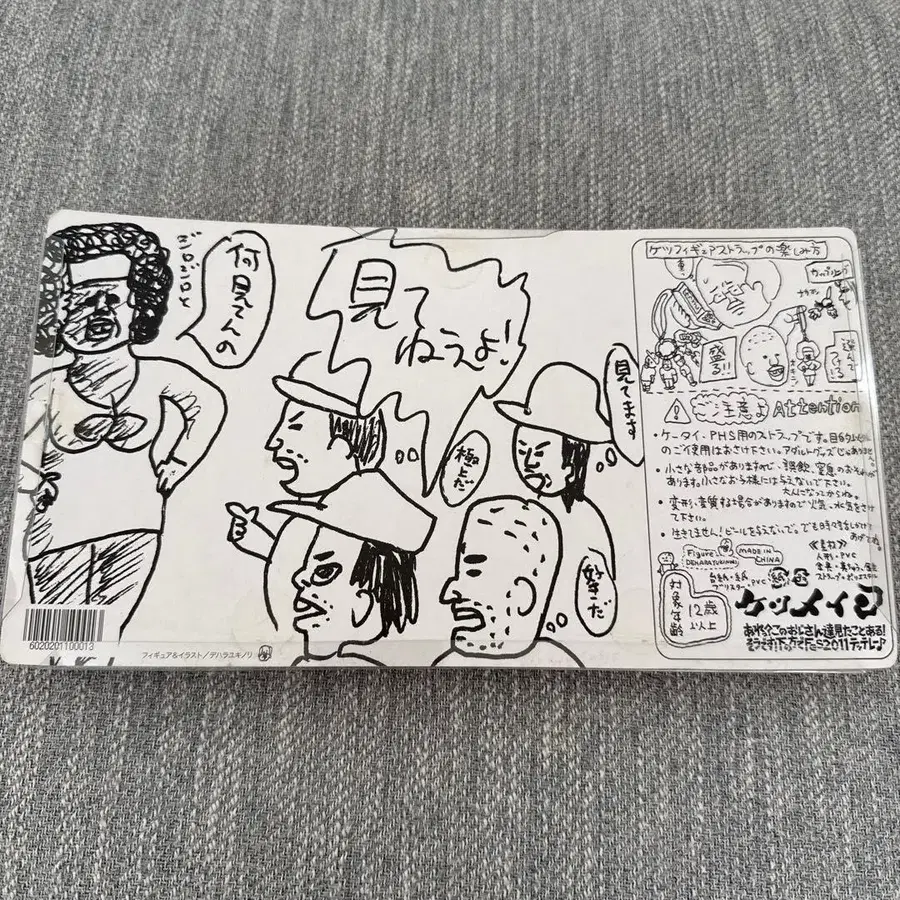 何見てんの
ジロジロと
見て
ねぇよ!
見てます
極上だ
好きだ
6020201100013
フィギュア&イラスト/デハラユキノリ
ケツフィギュアストラップの楽しみ方
盛る!!
選んで
ご注意よ Attention
・ケータイ・PHS用のストラップです。目的以外
のご使用はおさけ下さい。アダルトグッズじゃありませ
・小さな部品がありますので、誤飲、窒息のおそれが
あります。小さなお子様には与えないで下さい。
大人になってからね。
・変形、変質する場合がありますので火気、水気をさけ
て下さい。
・生きてません!ビールを与えないで。でも時々話しかけて
あげてね。
Figure by DEHARAYUKINORI
MADE IN CHINA
台紙・紙
ブリスター PVC
紙
プラ
《素材》
人形・PVC
ストラップ・ポリエステル
対象年齢
12歳以上
ケツメイシ
あれ?このおじさん達見たことある!
2011